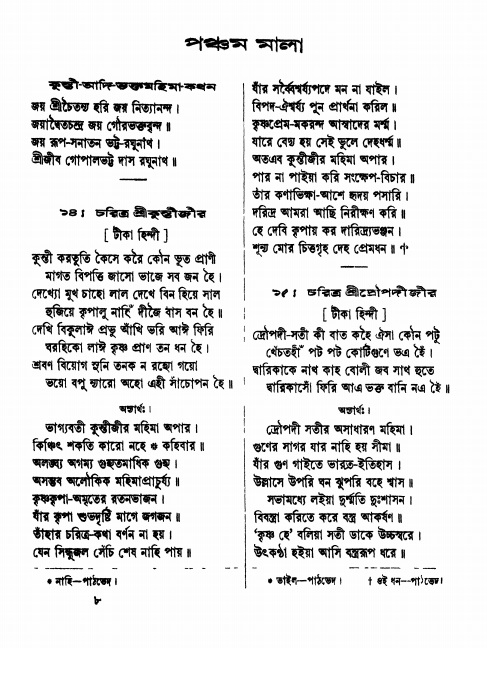 পঞ্চম মালা
কুন্তী-আদি-ভক্তমহিমা-কথন
জয় শ্রীচৈতন্য হরি জয় নিত্যানন্দ।
জয়াদ্বৈতচন্দ্র জয় গৌরভক্তবৃন্দ॥
জয় রূপ-সনাতন ভট্ট-রঘুনাথ।
শ্রীজীব গোপালভট্ট দাস রঘুনাথ॥
১৪। চরিত্র শ্রীকুন্তীজীর
[ টীকা হিন্দী ]
কুন্তী করতুতি কৈসে করৈ কৌন ভূত প্রাণী
মাগত বিপত্তি জাসো ভাজে সব জন হৈ।
দেখ্যো মুখ চাহো লাল দেখে বিন হিয়ে সাল
হুজিয়ে কৃপালু নাহিঁ দীজৈ বাস বন হৈ॥
দেখি বিকুলাঈ প্রভু আঁখি ভরি আঈ ফিরি
ঘরহিকো লাঈ কৃষ্ণ প্রাণ তন ধন হৈ।
শ্রবণ বিয়োগ সুনি তনক ন রহ্যো গয়ো
ভয়ো বপু ন্যারো অহো এহী সাঁচোপন হৈ॥
অস্যার্থঃ।
ভাগ্যবতী কুন্তীজীর মহিমা অপার।
কিঞ্চিৎ শকতি কারো নহে * কহিবার॥
অলঙ্ঘ্য অগম্য গুহ্যতমাধিক গুহ্য।
অসম্ভব অলৌকিক মহিমাপ্রাচুর্য্য॥
কৃষ্ণকৃপা-অমৃতের রতনভাজন।
যাঁর কৃপা শুভদৃষ্টি মাগে জগজন॥
তাঁহার চরিত্র-কথা বর্ণন না হয়।
যেন সিন্ধুজল সেঁচি শেষ নাহি পায়॥
* নাহি—পাঠভেদ।
৮
যাঁর সর্ব্বৈশ্বর্য্যপদে মন না যাইল।
বিপদ-ঐশ্বর্য্য পুন প্রার্থনা করিল॥
কৃষ্ণপ্রেম-মকরন্দ আস্বাদের মর্ম্ম।
যারে বেদ্য হয় সেই ভুলে দেহধর্ম্ম॥
অতএব কুন্তীজীর মহিমা অপার।
পার না পাইয়া করি সংক্ষেপ-বিচার॥
তাঁর কণাভিক্ষা-আশে হৃদয় পসারি।
দরিদ্র আমরা আছি নিরীক্ষণ করি॥
হে দেবি কৃপায় কর দারিদ্র্যভঞ্জন।
শূন্য মোর চিত্তগৃহ দেহ প্রেমধন॥ †
১৫। চরিত্র শ্রীদ্রৌপদীজীর
[ টীকা হিন্দী ]
দ্রৌপদী-সতী কী বাত কহৈ ঐসা কোন পটু
খেঁচতহীঁ পট পট কোটিগুণে ভএ হৈঁ।
দ্বারিকাকে নাথ কাহ বোলী জব সাথ হুতে
দ্বারিকাসোঁ ফিরি আএ ভক্ত বানি নএ হৈঁ॥
অস্যার্থঃ।
দ্রৌপদী সতীর অসাধারণ মহিমা।
গুণের সাগর যার নাহি হয় সীমা॥
যাঁর গুণ গাইতে ভারত-ইতিহাস।
উল্লাসে উপরি ঘন ঝুপরি বহে শ্বাস॥
সভামধ্যে লইয়া দুর্ম্মতি দুঃশাসন।
বিবস্ত্রা করিতে করে বস্ত্র আকর্ষণ॥
‘কৃষ্ণ হে’ বলিয়া সতী ডাকে উচ্চস্বরে।
উৎকণ্ঠা হইয়া আসি বস্ত্ররূপ ধরে॥
* তাইল—পাঠভেদ। † ওই ধন—পাঠভেদ।